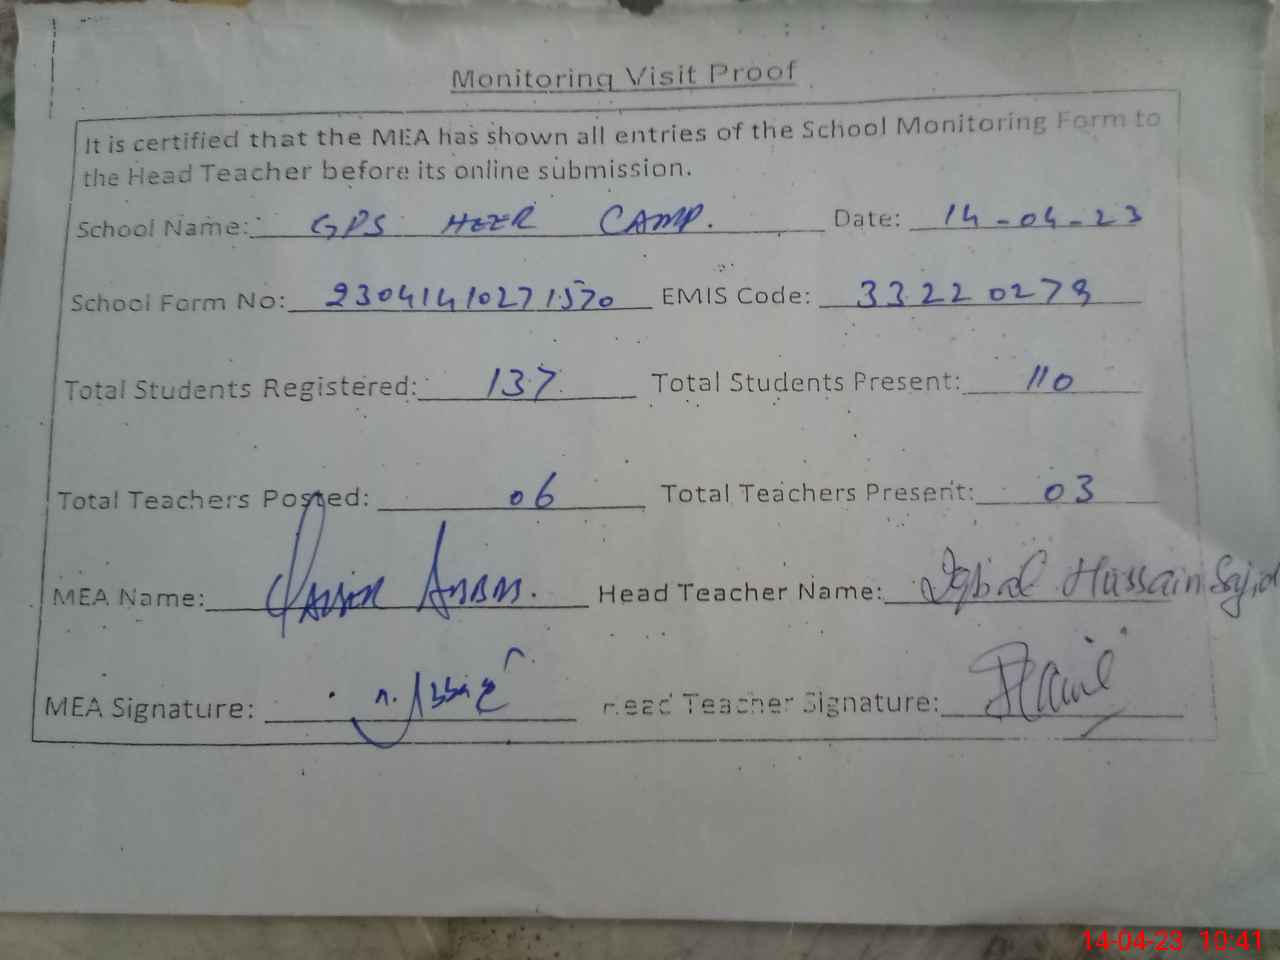 Monitoring Visit Proof
It is certified that the MEA has shown all entries of the School Monitoring Form to
the Head Teacher before its online submission.
School Name: GPS HEER CAMP. Date: 14-04-23
School Form No: 23041410271570 EMIS Code: 33220279
Total Students Registered: 137 Total Students Present: 110
Total Teachers Posted: 06 Total Teachers Present: 03
MEA Name: Head Teacher Name: Iqbal Hussain Sajid
MEA Signature: Head Teacher Signature:
14-04-23 10:41